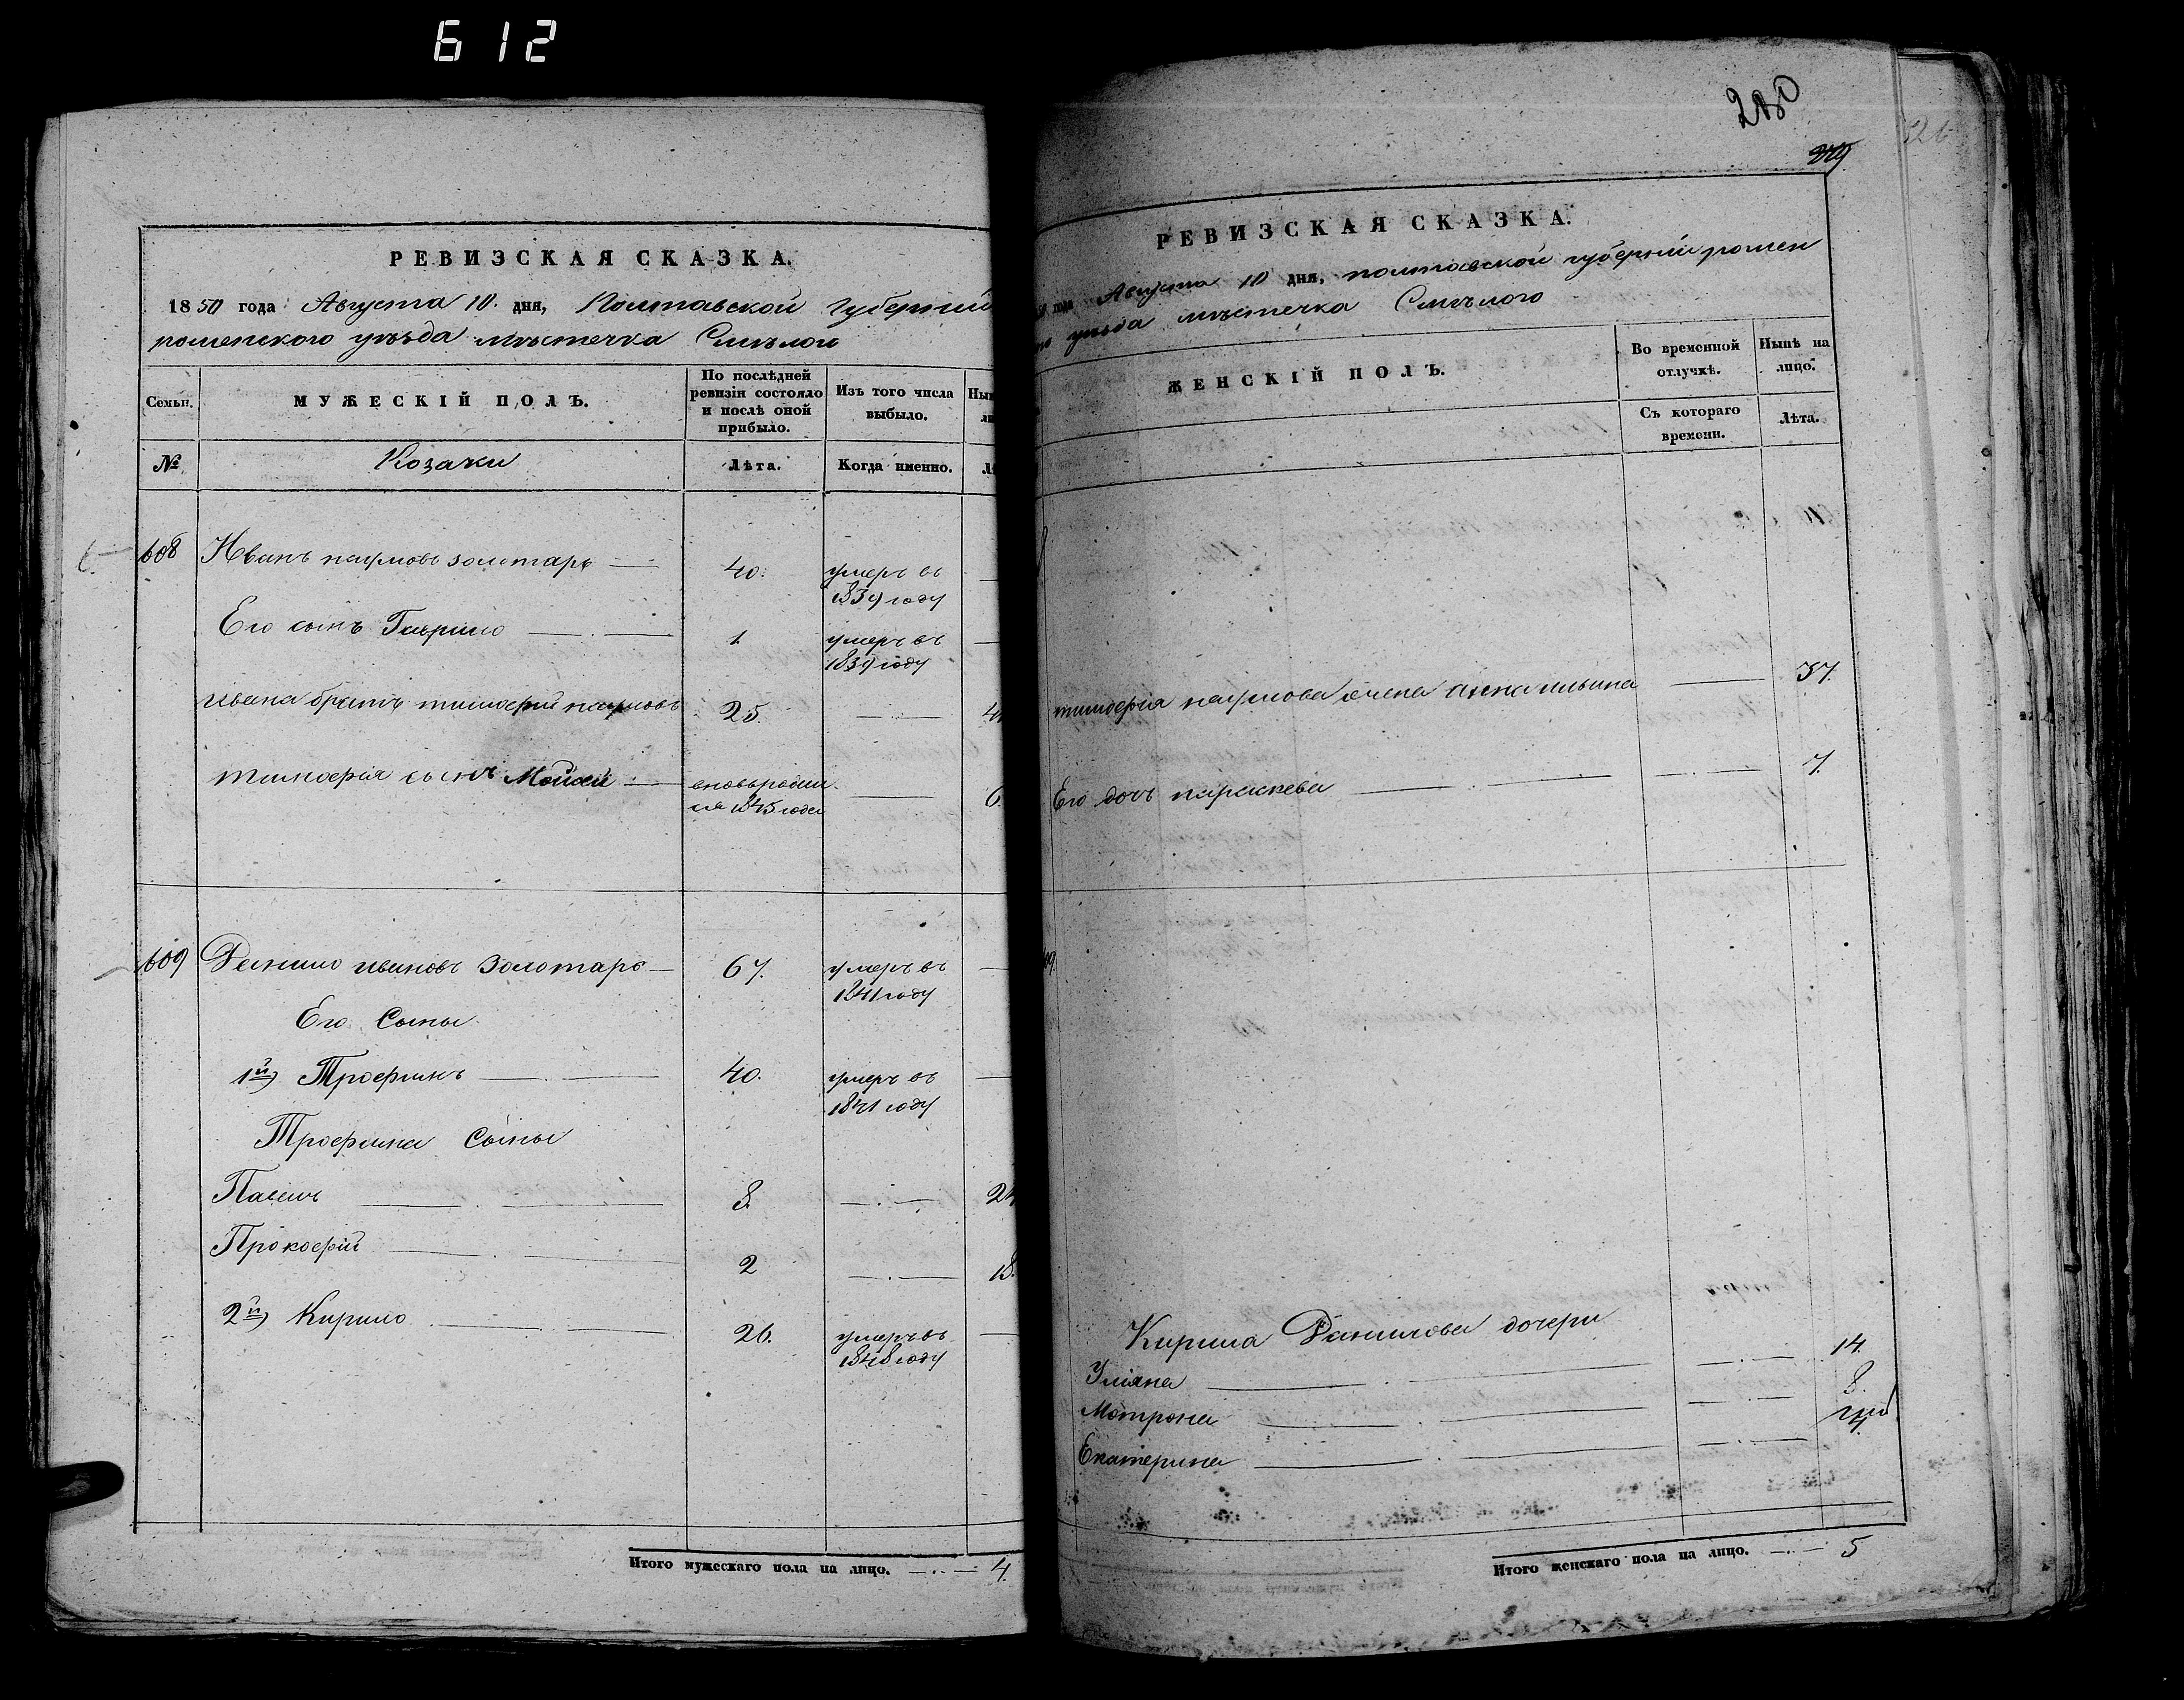 612
РЕВИЗСКАЯ СКАЗКА.
1850 года Августа 10. дня, Полтавской Губерніи
роменского уѣзда мѣстечка Смѣлого
Семьи.
МУЖЕСКІЙ ПОЛЪ.
По послѣдней
ревизіи состояло
и послѣ оной
прибыло.
Изъ того числа
выбыло.
№
Козаки
Лѣта.
Когда именно.
608 Иванъ наумовъ золотарь — 40. умеръ въ —
1839 году
Его сынъ Гаврило — . — 1. умеръ въ —
1839 году
ивана братъ тимофей наумовъ 25. — . —
тимофея сынъ Моисей — вновьродил — 6.
ся 1845 года
609 Данило ивановъ Золотарь — 67. умеръ въ —
1841 году
Его Сыны
1й) Трофимъ — . — 40. умеръ въ —
1841 году
Трофима Сыны
Павелъ — . — 8. — . — 24
Прокофій — . — 2 — . — 18.
2й) Кирило — . — 26. умеръ въ —
1848 году
Итого мужескаго пола на лицо. — .. — 4.
280
279
26
РЕВИЗСКАЯ СКАЗКА.
года Августа 10 дня, полтавской губерніи ромен
уѣзда мѣстечка Смѣлого
ЖЕНСКІЙ ПОЛЪ.
Во временной
отлучкѣ.
Нынѣ на
лицо.
Съ котораго
времени.
Лѣта.
тимофея наумова жена анна ильина — 37.
Его дочь параскева — . — — . — 7.
Кирила Данилова дочери
Уліяна — . — — . — 14.
Мотрона — . — — . — 8.
Екатерина — . — — . —
Итого женскаго пола на лицо. — .. — 5